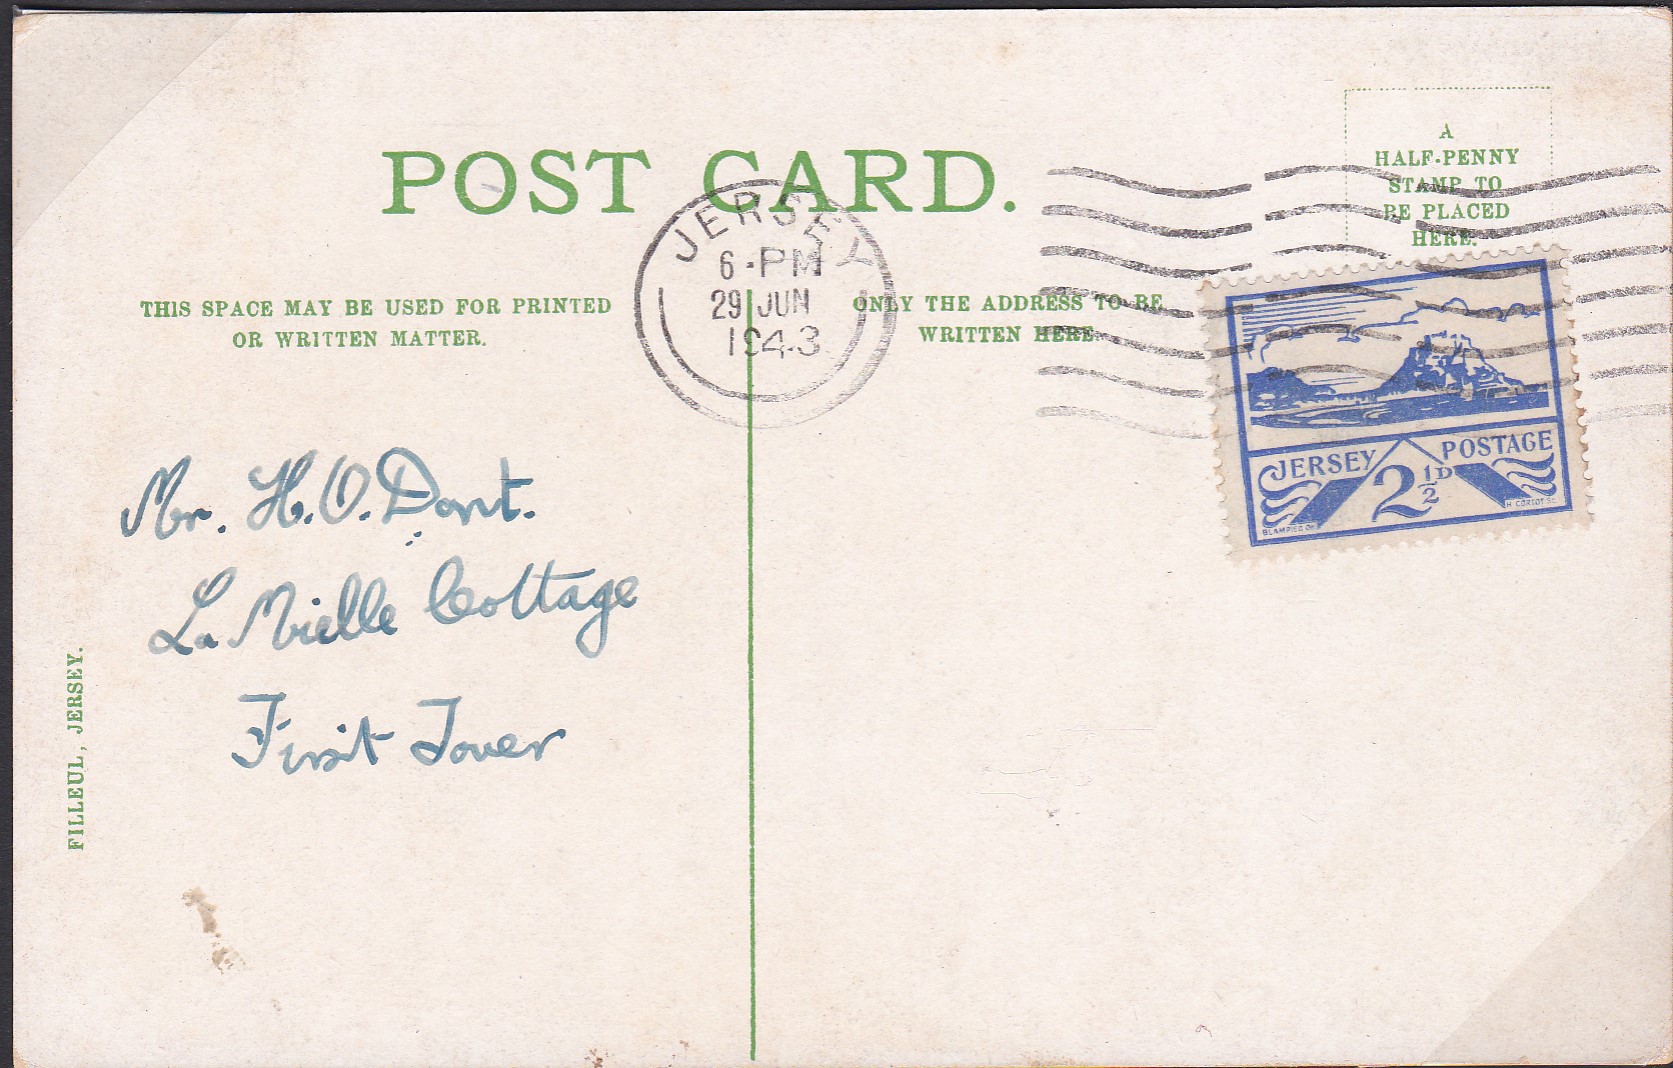 POST CARD.
A
HALF-PENNY
STAMP TO
BE PLACED
HERE.
JERSEY
6-PM
29 JUN
1943
THIS SPACE MAY BE USED FOR PRINTED
OR WRITTEN MATTER.
ONLY THE ADDRESS TO BE
WRITTEN HERE.
JERSEY POSTAGE
2½D
BLAMPIED DEL
H. CORTOT SC.
Mr. H.O. Dont.
La Mielle Cottage
First Tower
FILLEUL, JERSEY.